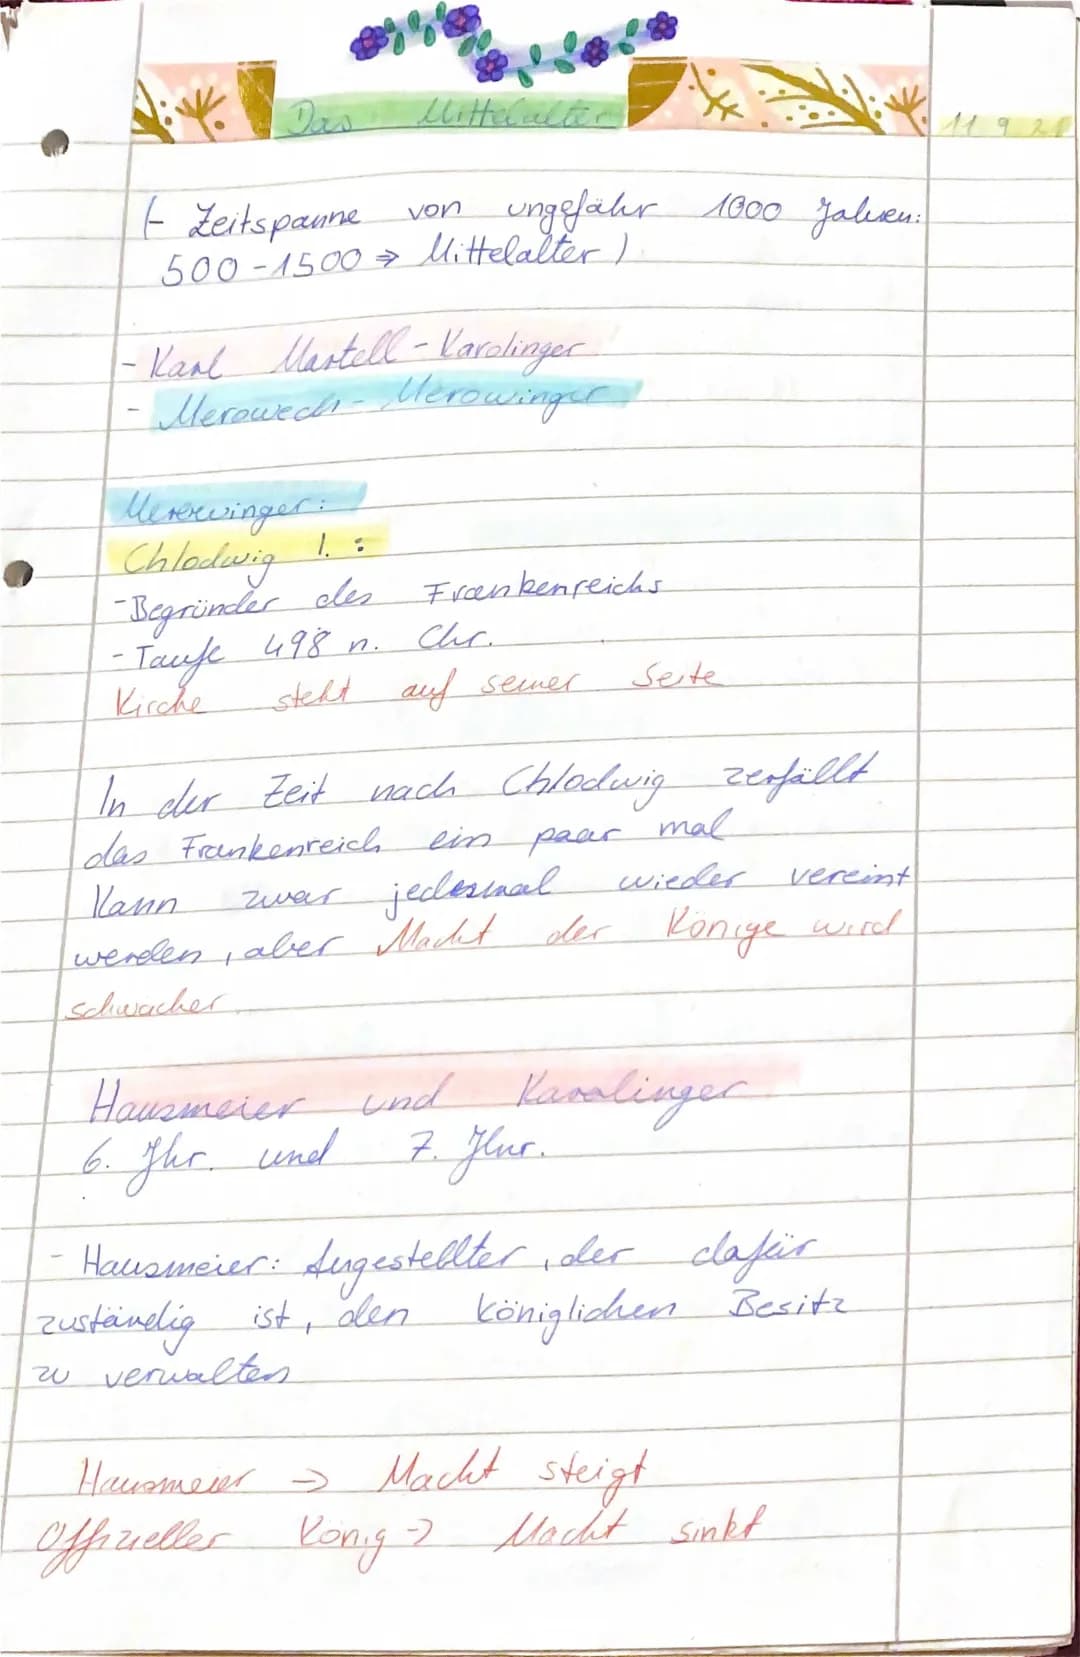 Das Mittelalter
11.9.21
(- Zeitspanne von ungefähr 1000 Jahren:
500-1500 ⇒ Mittelalter)
- Karl Martell - Karolinger
- Merowech - Merowinger
Merowinger:
Chlodwig 1. :
- Begründer des Frankenreichs
- Taufe 498 n. Chr.
Kirche steht auf seiner Seite
In der Zeit nach Chlodwig zerfällt
das Frankenreich ein paar mal
Kann zwar jedesmal wieder vereint
werden, aber Macht der Könige wird
schwächer.
Hausmeier und Karolinger
6. Jhr. und 7. Jhr.
- Hausmeier: Angestellter, der dafür
zuständig ist, den königlichen Besitz
zu verwalten
Hausmeier -> Macht steigt
Offizieller König -> Macht sinkt